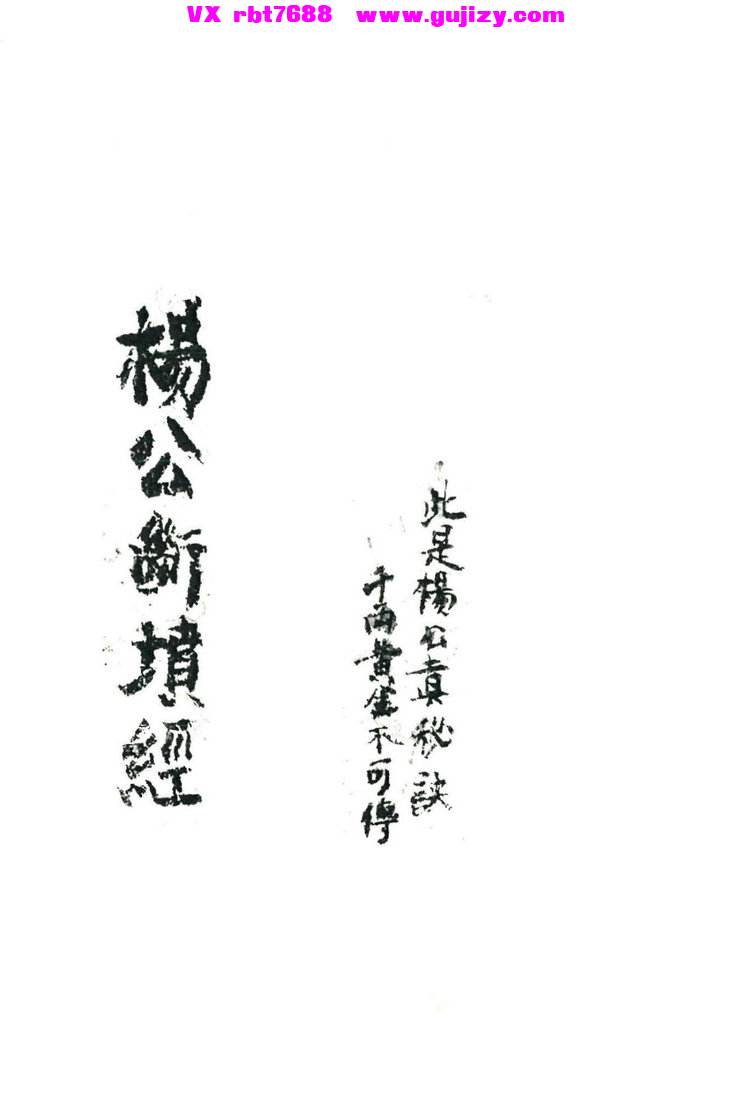 VX rbt7688 www.gujizy.com
此是楊公真秘訣
千两黄金不可傳
楊公斷墳經